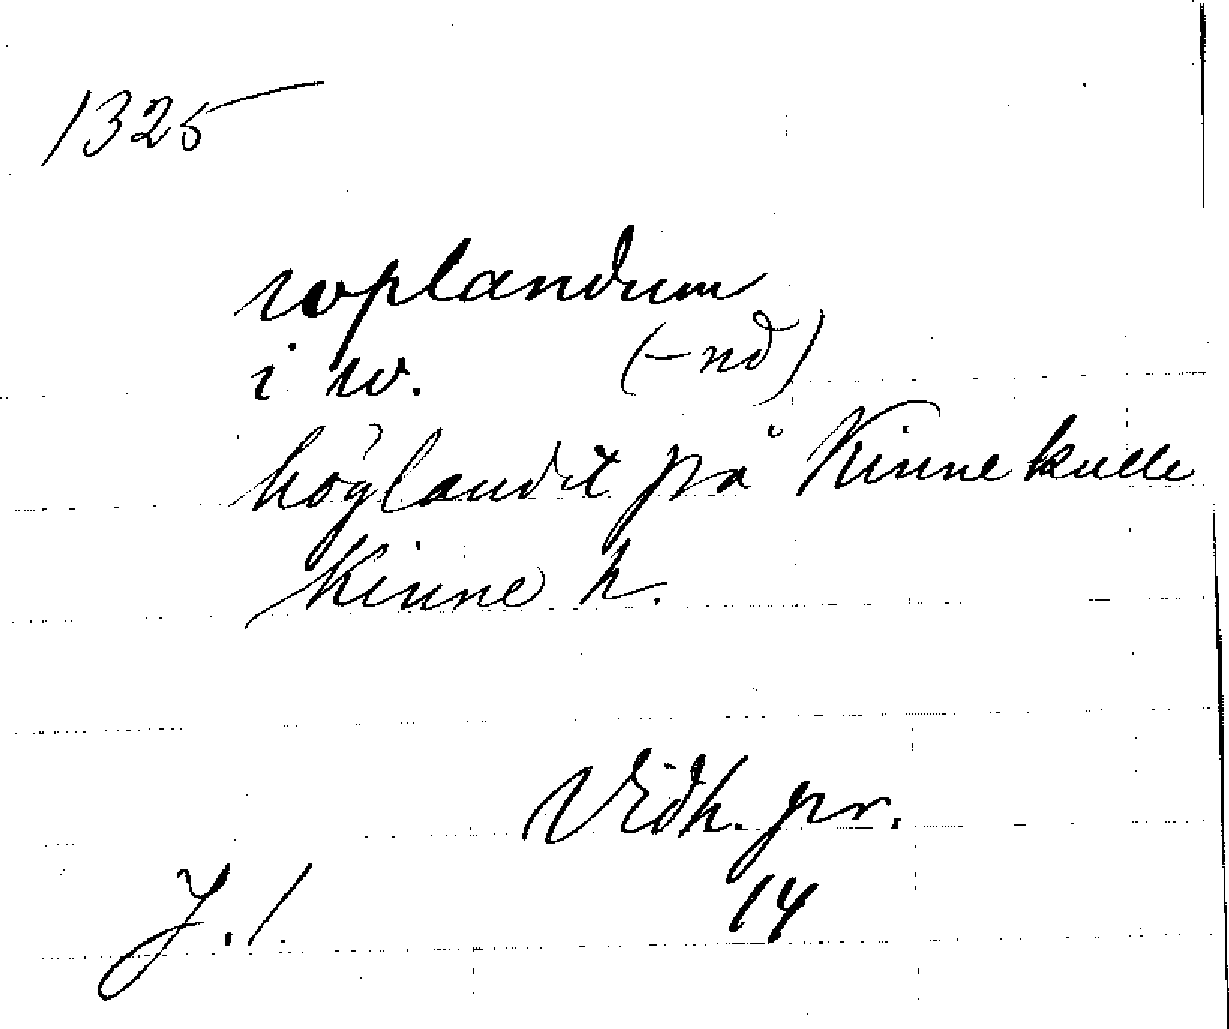 1325
woplandum
i w. (-nd)
höglandit på Kinnekulle
Kinne h.
Vidh. pr.
J. 1. 14